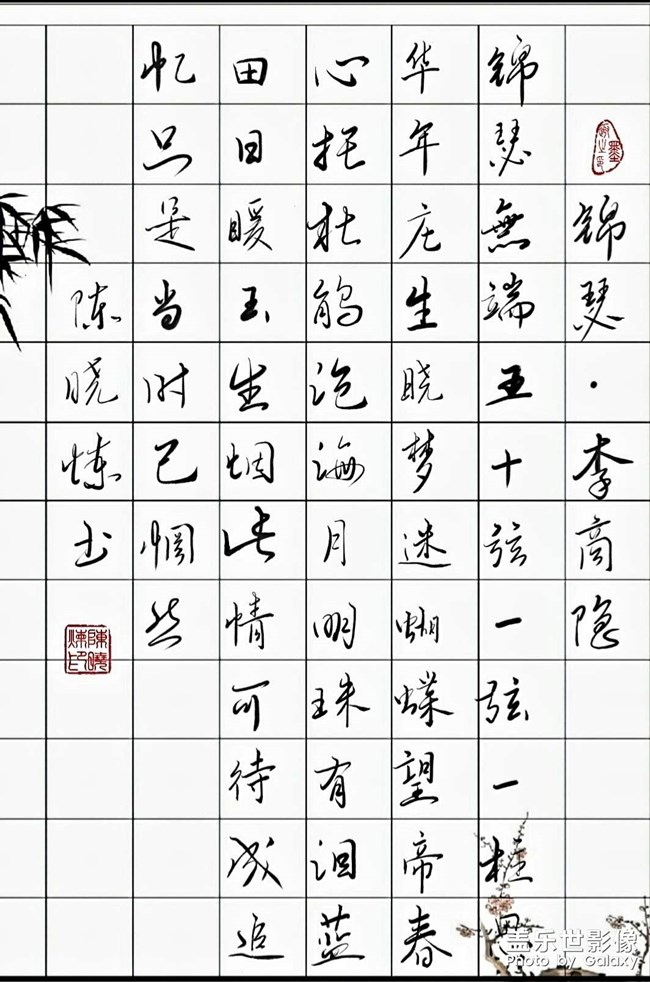 锦瑟·李商隐
锦瑟無端五十弦一弦一柱
华年庄生晓梦迷蝴蝶望帝春
心托杜鹃沧海月明珠有泪蓝
田日暖玉生烟此情可待成追
忆只是当时已惘然
陈晓炼书
陳曉煉印
盖乐世影像
Photo by Galaxy